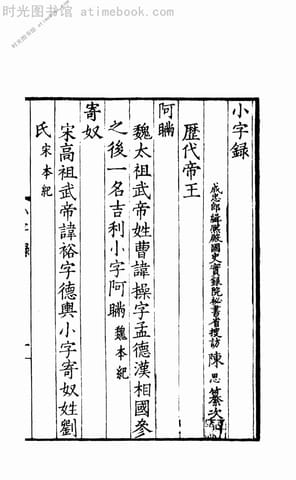 时光图书馆 atimebook.com
小字録
成忠郎緝熙殿國史實録院秘書省搜訪陳思纂次
歷代帝王
阿瞞
魏太祖武帝姓曹諱操字孟德漢相國參
之後一名吉利小字阿瞞 魏本紀
寄奴
宋高祖武帝諱裕字德輿小字寄奴姓劉
氏 宋本紀
小字録
一